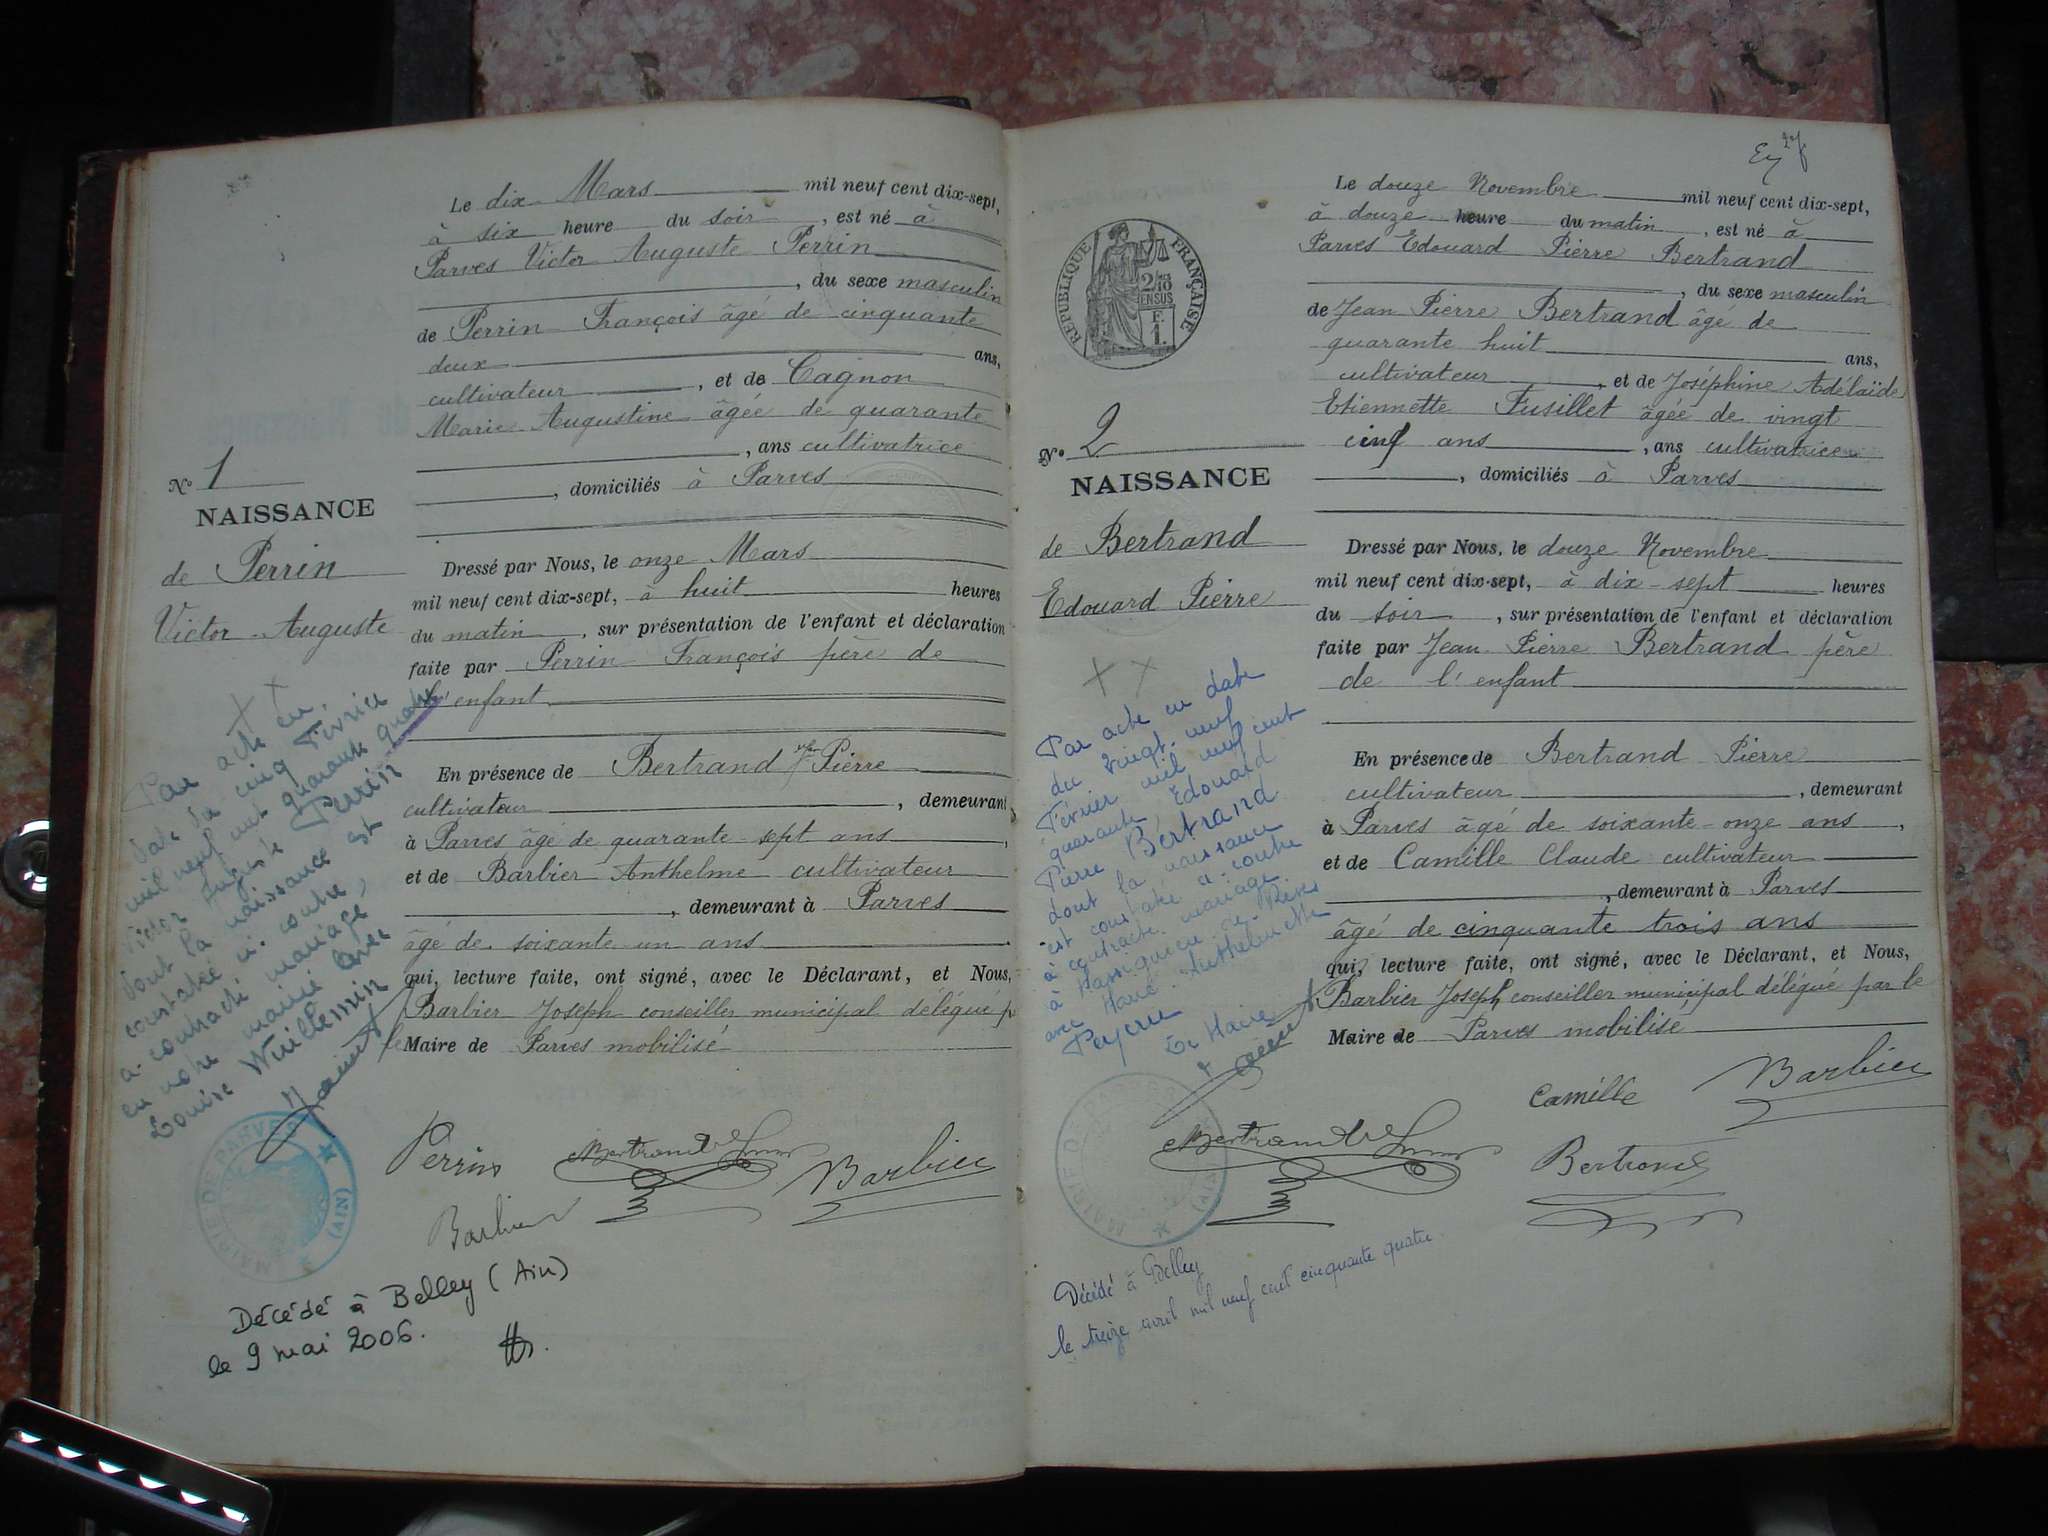 N° 1
NAISSANCE
de Perrin
Victor Auguste
Par acte en
date du cinq Février
mil neuf cent quarante quatre
Victor Auguste Perrin
dont la naissance est
constatée ci-contre,
a contracté mariage
en notre mairie avec
Louise Wuillemin
MAIRIE DE PARVES
(AIN)
Le dix Mars mil neuf cent dix-sept,
à six heure du soir, est né à
Parves Victor Auguste Perrin
, du sexe masculin
de Perrin François âgé de cinquante
deux ans,
cultivateur, et de Cagnon
Marie Augustine âgée de quarante
, ans cultivatrice
, domiciliés à Parves
Dressé par Nous, le onze Mars
mil neuf cent dix-sept, à huit heures
du matin, sur présentation de l'enfant et déclaration
faite par Perrin François père de
l'enfant
En présence de Bertrand Pierre
cultivateur, demeurant
à Parves âgé de quarante-sept ans,
et de Barbier Anthelme cultivateur
, demeurant à Parves
âgé de soixante un ans
qui, lecture faite, ont signé, avec le Déclarant, et Nous,
Barbier Joseph conseiller municipal délégué p
le Maire de Parves mobilisé
Perrin Bertrand Barbier
Barbier
Décédé à Belley (Ain)
le 9 mai 2006.
RÉPUBLIQUE FRANÇAISE
2/10
EN SUS
F.
1.
N° 2
NAISSANCE
de Bertrand
Edouard Pierre
Par acte en date
du vingt-neuf
Février mil neuf cent
quarante, Edouard
Pierre Bertrand
dont la naissance
est constatée ci-contre
a contracté mariage
à
avec Marie Anthelmette
Peycru
Le Maire
MAIRIE DE PARVES
(AIN)
Le douze Novembre mil neuf cent dix-sept,
à douze heure du matin, est né à
Parves Edouard Pierre Bertrand
, du sexe masculin
de Jean Pierre Bertrand âgé de
quarante huit ans,
cultivateur, et de Joséphine Adélaïde
Etiennette Fusillet âgée de vingt
cinq ans, ans cultivatrice
, domiciliés à Parves
Dressé par Nous, le douze Novembre
mil neuf cent dix-sept, à dix-sept heures
du soir, sur présentation de l'enfant et déclaration
faite par Jean Pierre Bertrand père
de l'enfant
En présence de Bertrand Pierre
cultivateur, demeurant
à Parves âgé de soixante-onze ans,
et de Camille Claude cultivateur
, demeurant à Parves
âgé de cinquante trois ans
qui, lecture faite, ont signé, avec le Déclarant, et Nous,
Barbier Joseph, conseiller municipal délégué par le
Maire de Parves mobilisé
Camille Barbier
Bertrand Bertrand
Décédé à Belley
le treize avril mil neuf cent cinquante quatre.